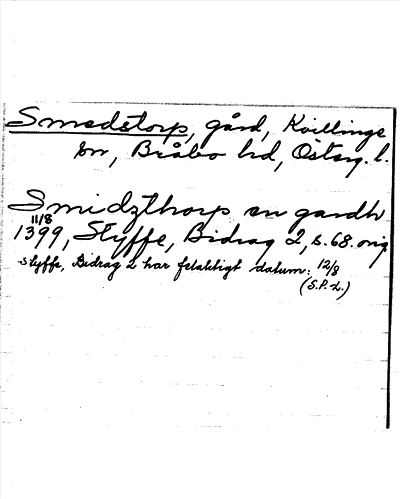 Smedstorp, gård, Kvillinge
sn, Bråbo hd, Österg. l.
Smidzthorp en gardh
11/8
1399, Styffe, Bidrag 2, s. 68. orig.
Styffe, Bidrag 2 har felaktigt datum: 12/8
(S.P.L.)